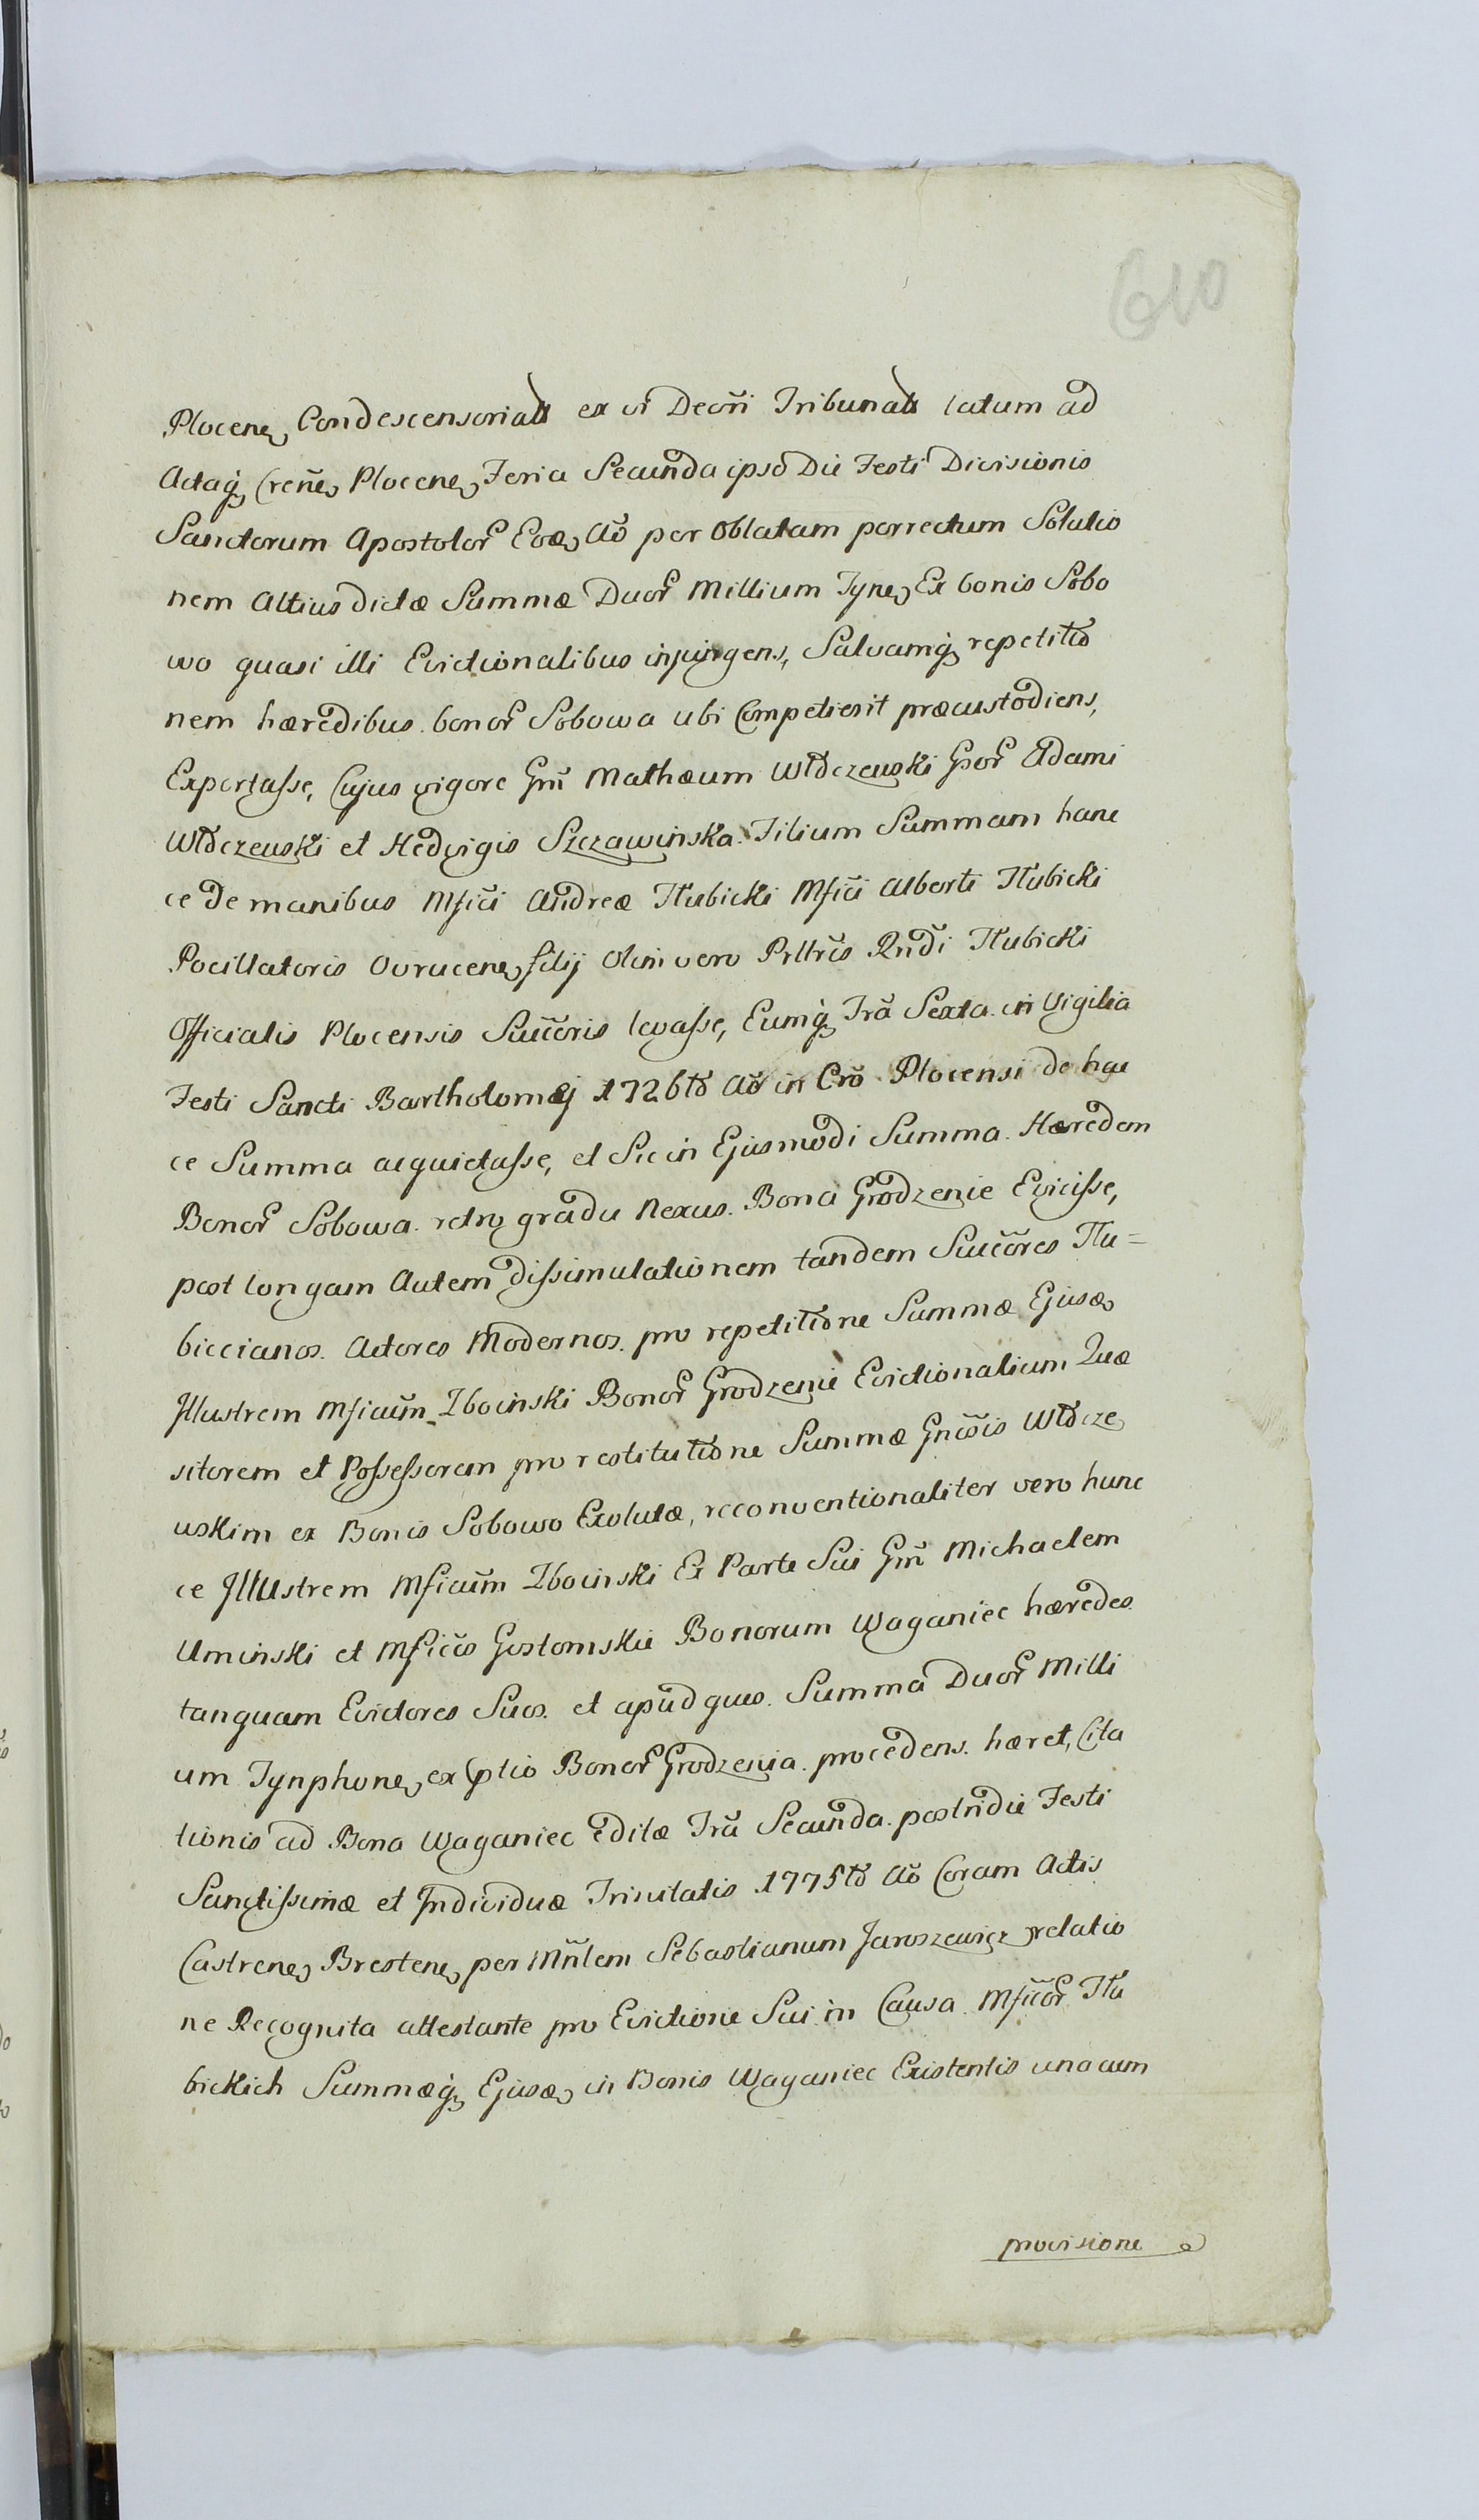 610
Plocene, Condescensorials ex vi Decr̃i Tribunals latum ad
Actaq; Cren̄e, Plocene, Feria Secunda ipso Die Festi Divisionis
Sanctorum Apostolor̃ Eoa, Aõ per Oblatam porrectum Solutio
nem Altius dictæ Summæ Duor̃ Millium Tyne, Ex bonis Sobo
wo quasi illi Evictionalibus injungens, Salvamq; repetitio
nem hæredibus bonor̃ Sobowa ubi Competierit præcustodiens,
Exportasse, Cujus vigore Gñ Mathæum Włoczewski Gsor̃ Adami
Włoczewski et Hedvigis Szczawinska Filium Summam hanc
ce de manibus Mfici Andreæ Tłubicki Mfici Alberti Tłubicki
Pocillatoris Ovrucene, filij Olim vero Plltris Rñdi Tłubicki
Officialis Plocensis Succ̃oris levasse, Eumq; Frã Sexta in Vigilia
Festi Sancti Bartholomæj 1726to Aõ in Crõ Plocensi de hac
ce Summa acquietasse, et Sic in Ejusmodi Summa Hæredem
Bonor̃ Sobowa retro gradu Nexus Bona Grodzenie Evicisse,
post longam Autem dissimulationem tandem Succ̃ores Tłu=
biccianos Actores Modernos pro repetitione Summæ Ejusa,
Illustrem Mficum Zboinski Bonor̃ Grodzenie Evictionalium Quæ
sitorem et Possessorem pro restitutione Summæ Gñosis Włocze,
wskim ex Bonis Sobowo Exolutæ, reconventionaliter vero hunc
ce Illustrem Mficum Zboinski Ex Parte Sui Gñ Michaelem
Uminski et Mficos Gostomskie Bonorum Waganiec hæredes
tanquam Evictores Suos et apud quos Summa Duor̃ Milli
um Tynphone, ex ptio Bonor̃ Grodzenia procedens hæret, Cita
tionis ad Bona Waganiec editæ Frã Secunda postridie Festi
Sanctissimæ et Individuæ Trinitatis 1775to Aõ Coram Actis
Castrene, Brestene, per Mñlem Sebastianum Jaroszewicz relatio
ne Recognita attestante pro Evictione Sui in Causa Mficor̃ Tłu
bickich Summæq; Ejusa, in Bonis Waganiec Existentis una cum
provisione